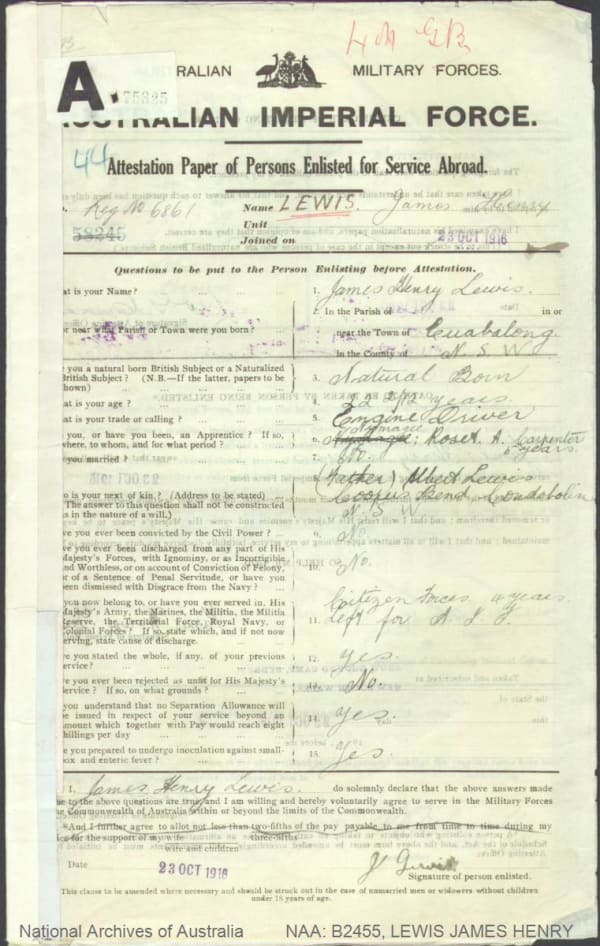 4 M GB
RALIAN MILITARY FORCES.
A. 75325
AUSTRALIAN IMPERIAL FORCE.
44
Attestation Paper of Persons Enlisted for Service Abroad.
Reg No 6861 Name LEWIS. James Henry
58245 Unit
Joined on 23 OCT 1916
Questions to be put to the Person Enlisting before Attestation.
at is your Name? ... ... 1. James Henry Lewis.
2. In the Parish of in or
or near what Parish or Town were you born? near the Town of Euabalong
in the County of N. S. W.
you a natural born British Subject or a Naturalized
British Subject? (N.B.—If the latter, papers to be
hown) 3. Natural Born
at is your age? ... 4. years
at is your trade or calling? ... 5. Engine Driver
you, or have you been, an Apprentice? If so,
where, to whom, and for what period? 6. Robt. A. Carpenter
years
you married? 7. No.
(Father) Albert Lewis
o is your next of kin? (Address to be stated) Bend Condobolin
The answer to this question shall not be constructed
as in the nature of a will.) N. S. W.
ve you ever been convicted by the Civil Power? 9. No
ve you ever been discharged from any part of His
Majesty's Forces, with Ignominy, or as Incorrigible
and Worthless, or on account of Conviction of Felony,
or of a Sentence of Penal Servitude, or have you
been dismissed with Disgrace from the Navy? 10. No.
you now belong to, or have you ever served in, His
Majesty's Army, the Marines, the Militia, the Militia
Reserve, the Territorial Force, Royal Navy, or
Colonial Forces? If so, state which, and if not now
serving, state cause of discharge. 11. Citizen Forces years
left for A. I. F.
ve you stated the whole, if any, of your previous
service? 12. yes.
ve you ever been rejected as unfit for His Majesty's
Service? If so, on what grounds? 13. No.
you understand that no Separation Allowance will
be issued in respect of your service beyond an
amount which together with Pay would reach eight
hillings per day 14. yes.
re you prepared to undergo inoculation against small-
pox and enteric fever? 15. yes
I, James Henry Lewis. do solemnly declare that the above answers made
me to the above questions are true, and I am willing and hereby voluntarily agree to serve in the Military Forces
the Commonwealth of Australia within or beyond the limits of the Commonwealth.
*And I further agree to allot not less than two-fifths of the pay payable to me from time to time during my
ice for the support of my wife three-fifths
wife and children
Date 23 OCT 1916 J Lewis
Signature of person enlisted.
This clause to be amended where necessary and should be struck out in the case of unmarried men or widowers without children
under 18 years of age.
National Archives of Australia NAA: B2455, LEWIS JAMES HENRY